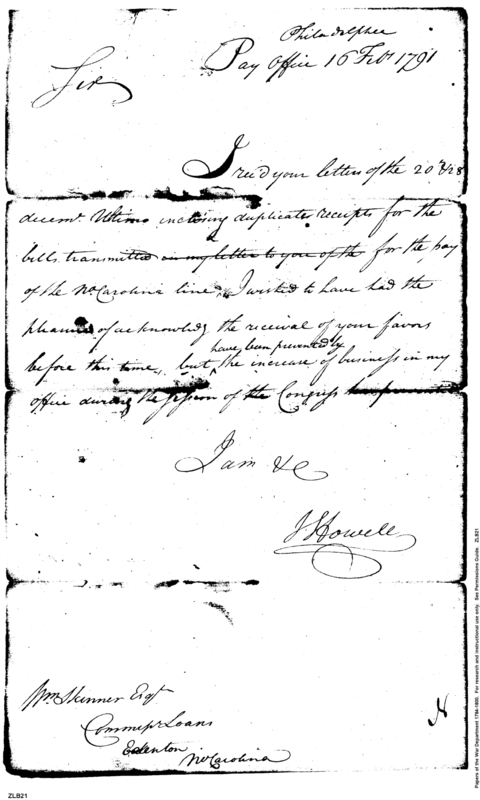 Philadelphia
Pay Office 16 Feb.y 1791
Sir
I rec'd your letters of the 20th & 28
decem.r Ultimo inclosing duplicate receipts for the
bills transmitted in my letter to you of the for the pay
of the No. Carolina line, I wished to have had the
pleasure of acknowledg the receival of your favors
have been prevented by
before this time, but the increase of business in my
office during the session of the Congress has prevented
I am &c
J Howell
Wm Skinner Esqr
Commissr Loans
Edenton
No Carolina
N
Papers of the War Department 1784-1800. For research and instructional use only. See Permissions Guide. ZLB21
ZLB21